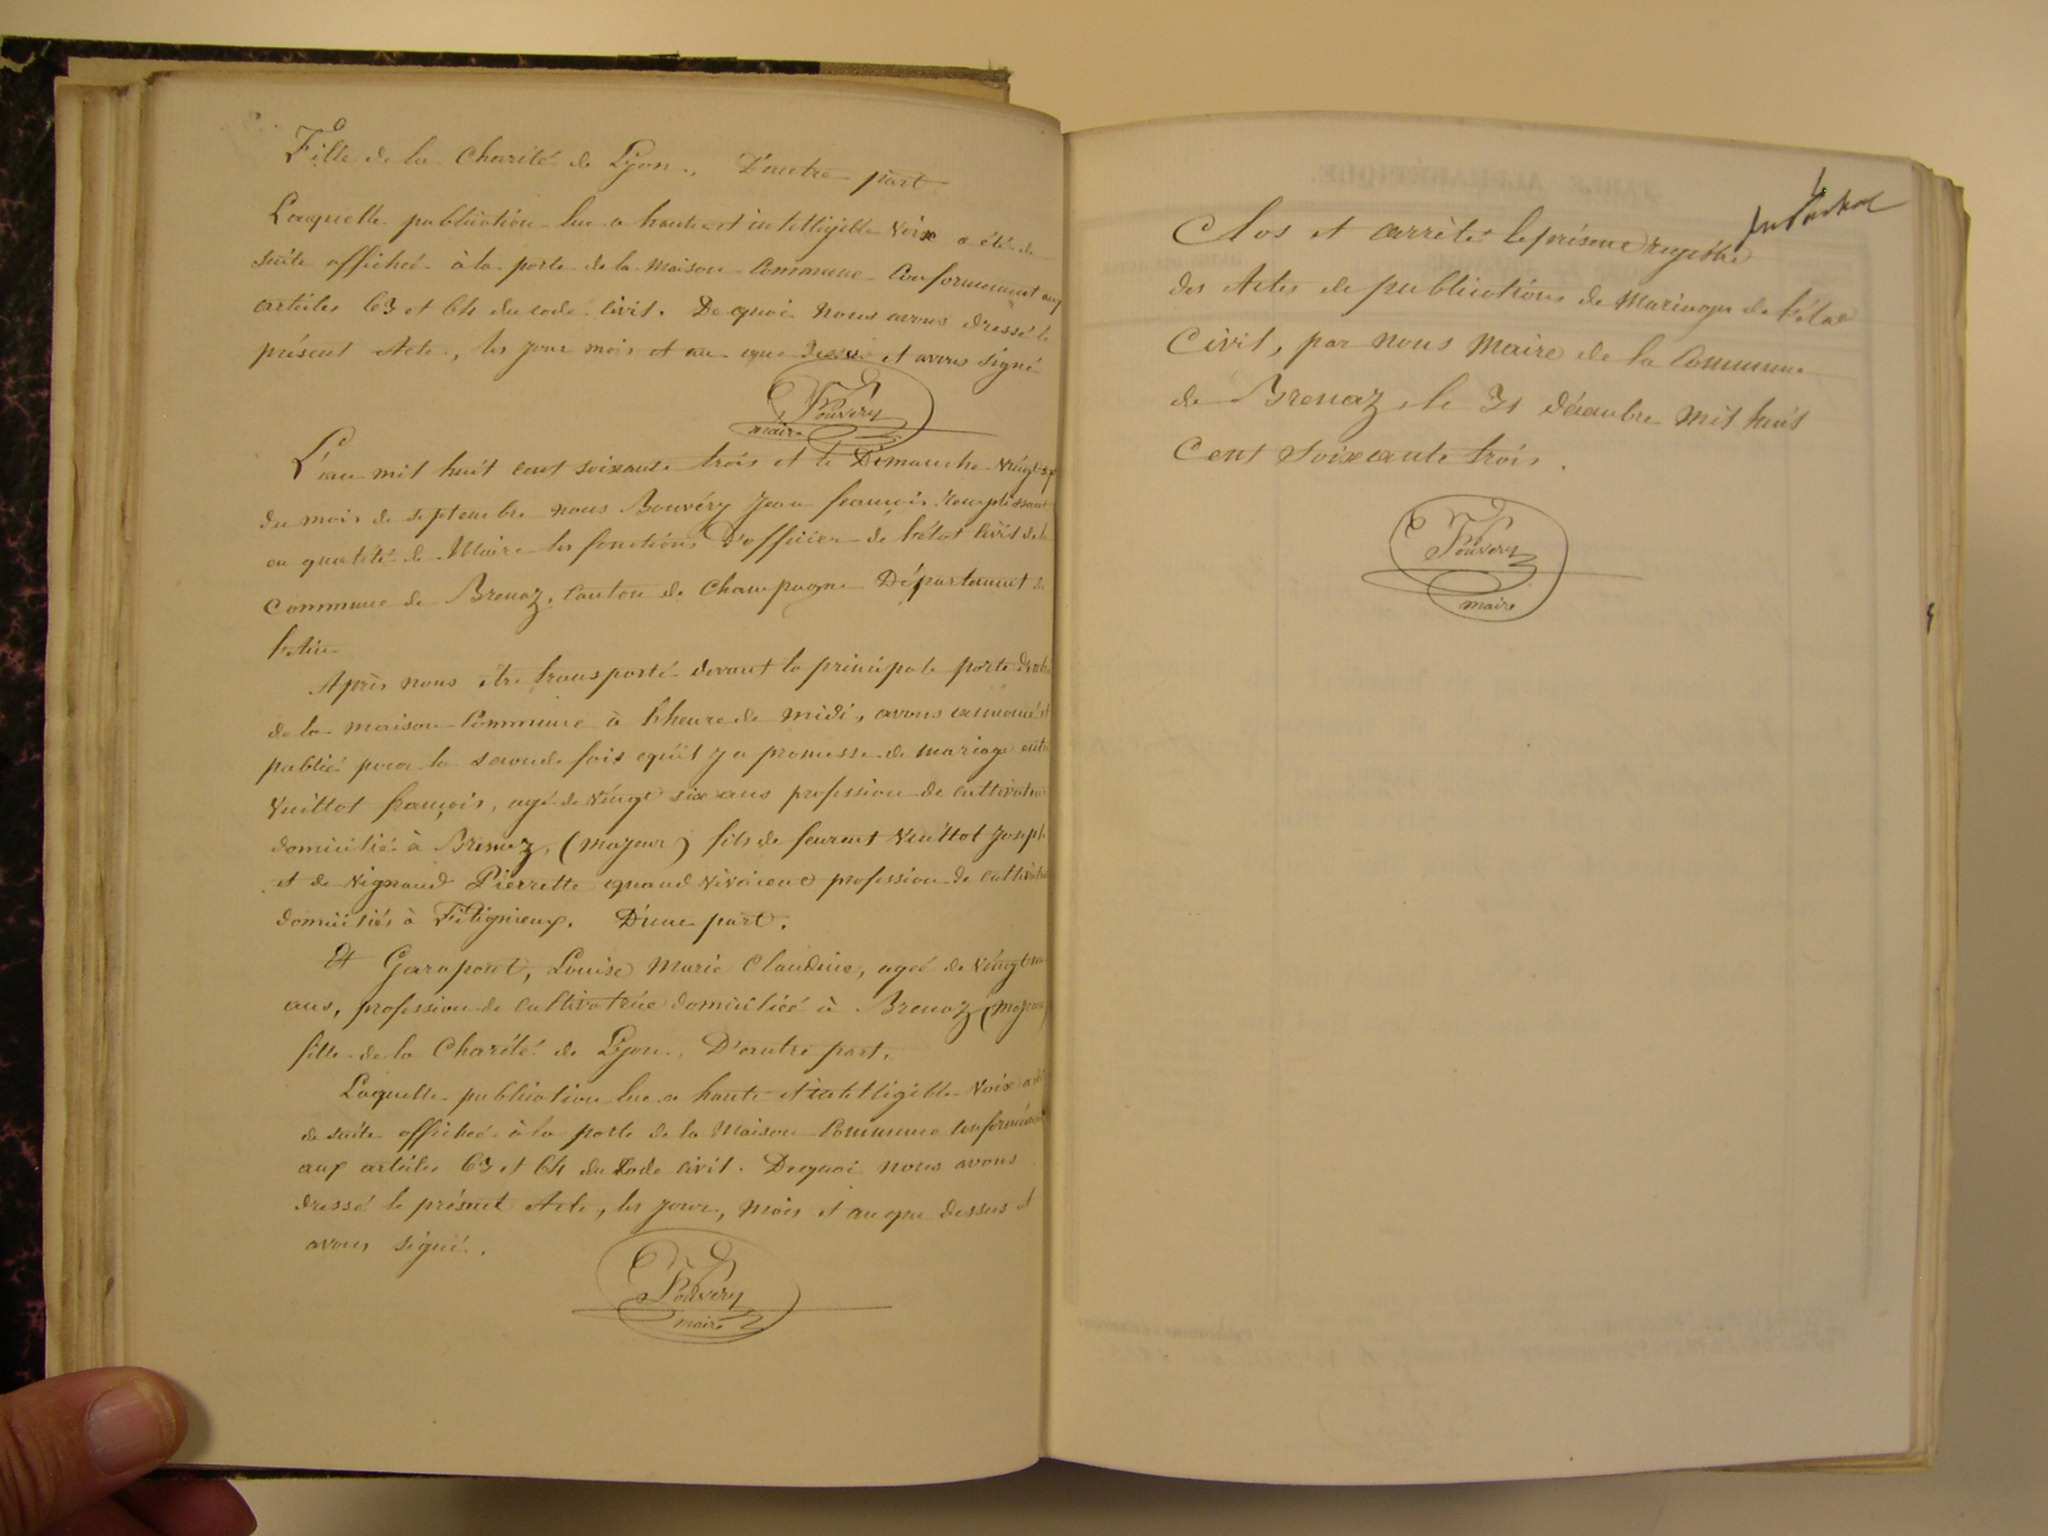 Fille de la Charité de Lyon., D'autre part
Laquelle publication lue a haute et intelligible Voix a été de
suite affichée à la porte de la Maison Commune Conformement aux
articles 63 et 64 du code civil. De quoi nous avons dressé le
présent Acte, les jour mois et an que dessus et avons signé
Bouvery
maire
L'an mil huit cent soixante trois et le Dimanche Vingt
du mois de septembre nous Bouvéry Jean françois remplissant
en qualité de Maire les fonctions D'officier de l'état civil de la
Commune de Brenaz, Canton de Champagne Département de
l'Ain
Après nous être transporté devant la principale porte d'entrée
de la maison Commune à l'heure de midi, avons annoncé et
publié pour la seconde fois qu'il y a promesse de mariage entre
Vuillot françois, agé de Vingt six ans profession de cultivateur
domicilié à Brenaz, (majeur) fils de feurent Vuillot Joseph
et de Vignand Pierrette quand vivaient profession de cultivateurs
domiciliés à Fitignieux. D'une part.
Et Garapont, Louise Marie Claudine, agée de Vingt
ans, profession de cultivatrice domiciliée à Brenaz (majeure)
fille de la Charité de Lyon. D'autre part.
Laquelle publication lue a haute et intelligible Voix a été
de suite affichée à la porte de la Maison Commune conformément
aux articles 63 et 64 du Code civil. De quoi nous avons
dressé le présent Acte, les jour, mois et an que dessus et
avons signé.
Bouvery
maire
Clos et arrêté le présent registre
des Actes de publications de Mariages de l'état
Civil, par nous Maire de la Commune
de Brenaz, le 31 décembre mil huit
Cent soixante trois.
Bouvery
maire